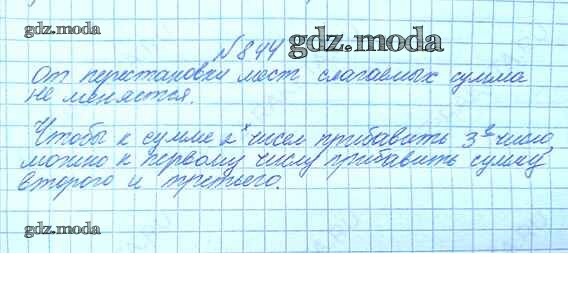 gdz.moda
№844
От перестановки мест слагаемых сумма
не меняется.
Чтобы к сумме 2ˣ чисел прибавить 3ᵉ число,
можно к первому числу прибавить сумму
второго и третьего.
gdz.moda
gdz.moda